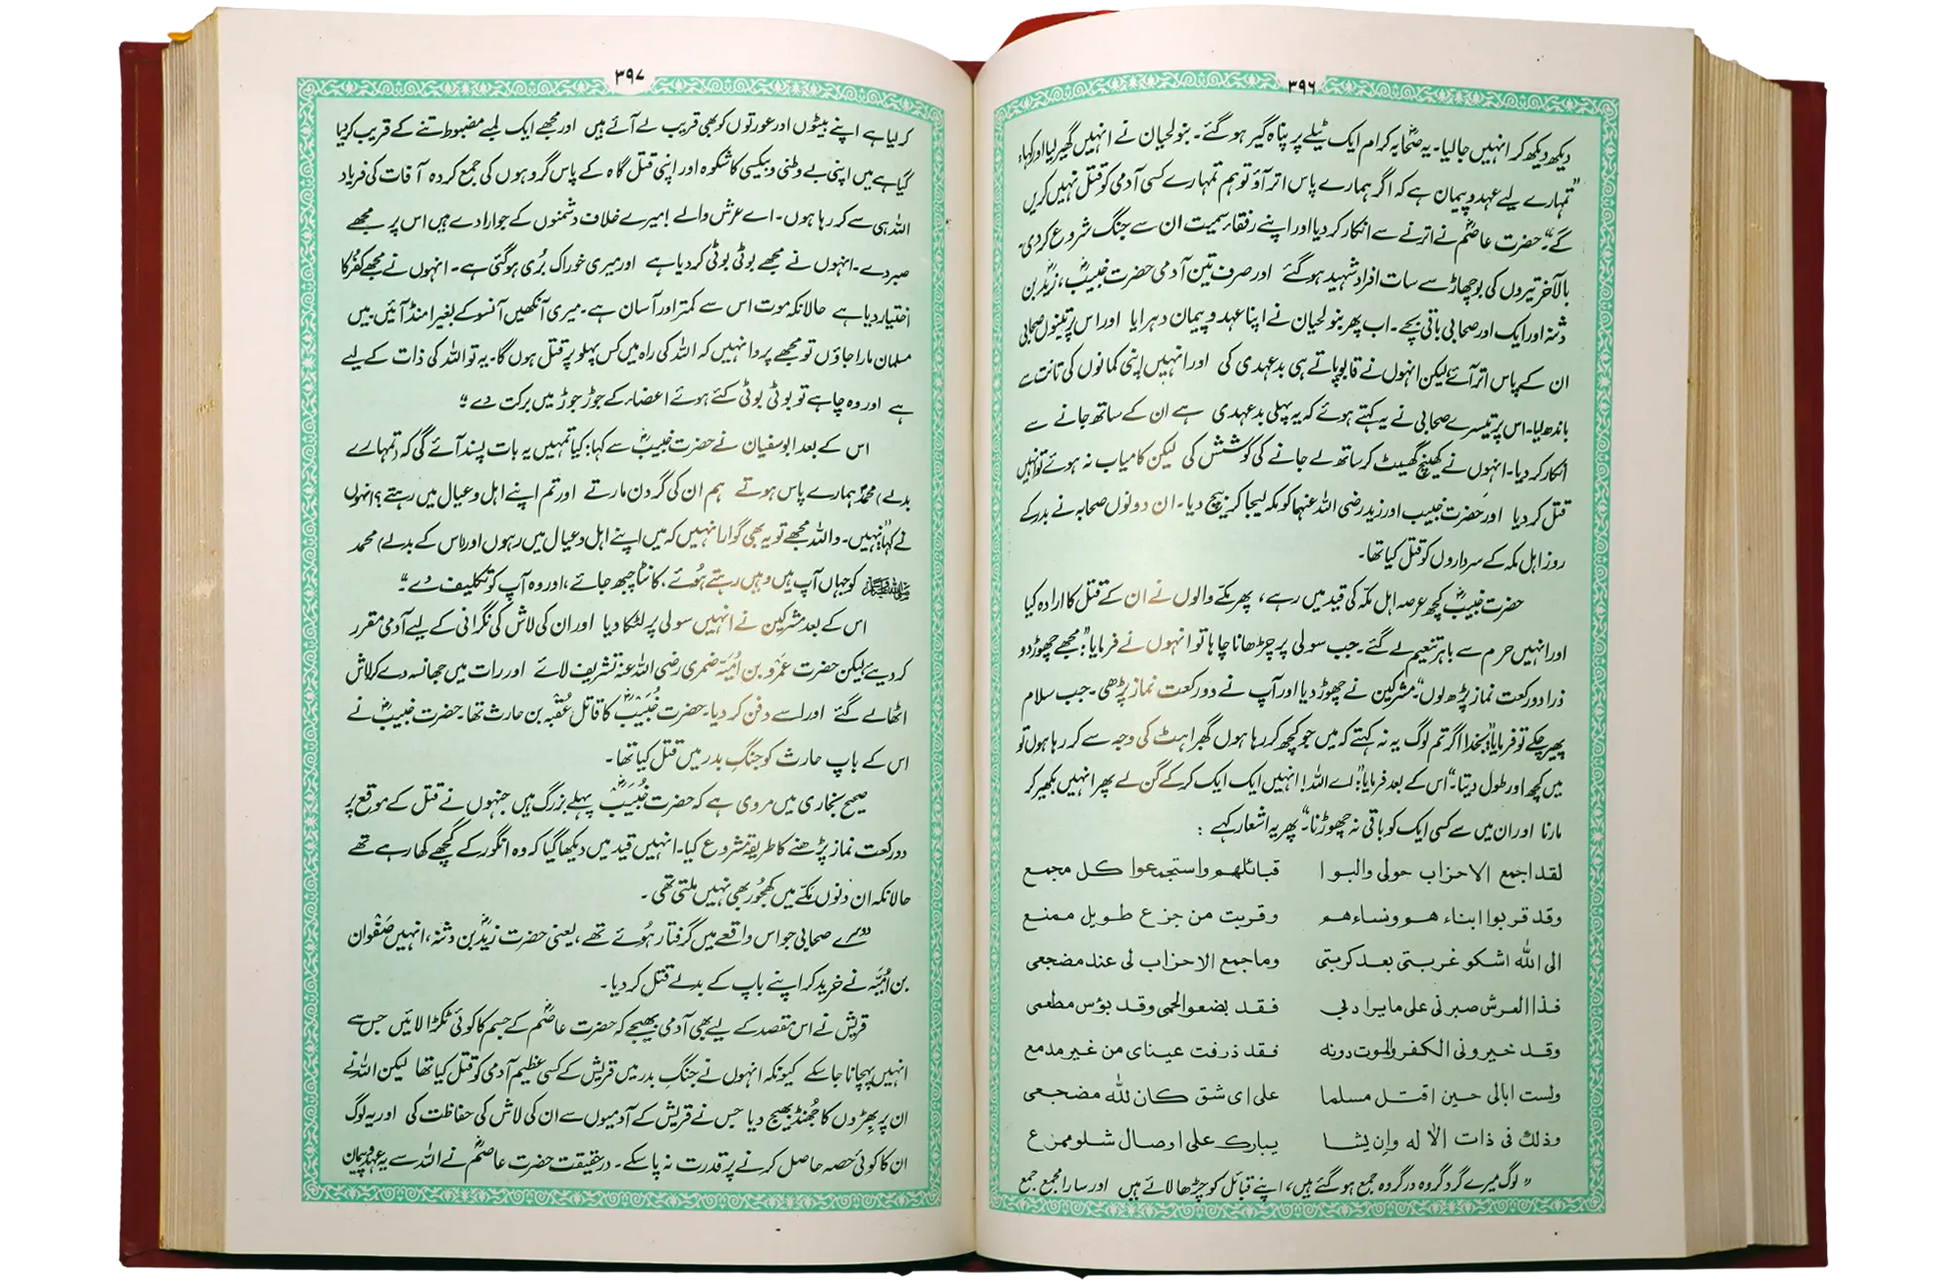 ۳۹۶
دیکھ دیکھ کر انہیں جالیا۔ یہ صحابہ کرام ایک ٹیلے پر پناہ گیر ہو گئے۔ بنو لحیان نے انہیں گھیر لیا اور کہا،
”تمہارے لیے عہد و پیمان ہے کہ اگر ہمارے پاس اتر آؤ تو ہم تمہارے کسی آدمی کو قتل نہیں کریں
گے“۔ حضرت عاصمؓ نے اترنے سے انکار کر دیا اور اپنے رفقاء سمیت ان سے جنگ شروع کر دی۔
بالآخر تیروں کی بوچھاڑ سے سات افراد شہید ہو گئے اور صرف تین آدمی حضرت خبیبؓ، زیدؓ بن
دثنہ اور ایک اور صحابی باقی بچے۔ اب پھر بنو لحیان نے اپنا عہد و پیمان دہرایا اور اس پر تینوں صحابی
ان کے پاس اتر آئے لیکن انہوں نے قابو پاتے ہی بدعہدی کی اور انہیں اپنی کمانوں کی تانت سے
باندھ لیا۔ اس پر تیسرے صحابی نے یہ کہتے ہوئے کہ یہ پہلی بدعہدی ہے ان کے ساتھ جانے سے
انکار کر دیا۔ انہوں نے کھینچ گھسیٹ کر ساتھ لے جانے کی کوشش کی لیکن کامیاب نہ ہوئے تو انہیں
قتل کر دیا اور حضرت خبیب اور زید رضی اللہ عنہما کو مکہ لیجا کر بیچ دیا۔ ان دونوں صحابہ نے بدر کے
روز اہل مکہ کے سرداروں کو قتل کیا تھا۔
حضرت خبیبؓ کچھ عرصہ اہل مکہ کی قید میں رہے، پھر مکے والوں نے ان کے قتل کا ارادہ کیا
اور انہیں حرم سے باہر تنعیم لے گئے۔ جب سولی پر چڑھانا چاہا تو انہوں نے فرمایا: ”مجھے چھوڑ دو
ذرا دو رکعت نماز پڑھ لوں“۔ مشرکین نے چھوڑ دیا اور آپ نے دو رکعت نماز پڑھی۔ جب سلام
پھیر چکے تو فرمایا: ”بخدا اگر تم لوگ یہ نہ کہتے کہ میں جو کچھ کر رہا ہوں گھبراہٹ کی وجہ سے کر رہا ہوں تو
میں کچھ اور طول دیتا“۔ اس کے بعد فرمایا: ”اے اللہ! انہیں ایک ایک کر کے گن لے پھر انہیں بکھیر کر
مارنا اور ان میں سے کسی ایک کو باقی نہ چھوڑنا“۔ پھر یہ اشعار کہے :
لقد اجمع الاحزاب حولی والبوا قبائلھم واستجمعوا کل مجمع
وقد قربوا ابناء ھم ونساء ھم وقربت من جزع طویل ممنع
الی اللہ اشکو غربتی بعد کربتی وما جمع الاحزاب لی عند مضجعی
فذا العرش صبرنی علی ما یراد بی فقد بضعوا لحمی وقد بؤس مطعمی
وقد خیرونی الکفر والموت دونہ فقد ذرفت عینای من غیر مدمع
ولست ابالی حین اقتل مسلما علی ای شق کان للہ مضجعی
وذلک فی ذات الالہ وان یشا یبارک علی اوصال شلو ممزع
”لوگ میرے گرد گروہ در گروہ جمع ہو گئے ہیں، اپنے قبائل کو چڑھا لائے ہیں اور سارا مجمع جمع
۳۹۷
کر لیا ہے اپنے بیٹوں اور عورتوں کو بھی قریب لے آئے ہیں اور مجھے ایک لمبے مضبوط تنے کے قریب کر دیا
گیا ہے میں اپنی بے وطنی و بیکسی کا شکوہ اور اپنی قتل گاہ کے پاس گروہوں کی جمع کردہ آفات کی فریاد
اللہ ہی سے کر رہا ہوں۔ اے عرش والے! میرے خلاف دشمنوں کے جو ارادے ہیں اس پر مجھے
صبر دے۔ انہوں نے مجھے بوٹی بوٹی کر دیا ہے اور میری خوراک بُری ہو گئی ہے۔ انہوں نے مجھے کفر کا
اختیار دیا ہے حالانکہ موت اس سے کمتر اور آسان ہے۔ میری آنکھیں آنسو کے بغیر امنڈ آئیں ہیں
مسلمان مارا جاؤں تو مجھے پروا نہیں کہ اللہ کی راہ میں کس پہلو پر قتل ہوں گا۔ یہ تو اللہ کی ذات کے لیے
ہے اور وہ چاہے تو بوٹی بوٹی کئے ہوئے اعضاء کے جوڑ جوڑ میں برکت دے“۔
اس کے بعد ابوسفیان نے حضرت خبیبؓ سے کہا: کیا تمہیں یہ بات پسند آئے گی کہ (تمہارے
بدلے) محمدؐ ہمارے پاس ہوتے ہم ان کی گردن مارتے اور تم اپنے اہل و عیال میں رہتے؟ انہوں
نے کہا: ”نہیں۔ واللہ مجھے تو یہ بھی گوارا نہیں کہ میں اپنے اہل و عیال میں رہوں اور (اس کے بدلے) محمد
ﷺ کو جہاں آپ ہیں وہیں رہتے ہُوئے، کانٹا چبھ جائے، اور وہ آپ کو تکلیف دے“۔
اس کے بعد مشرکین نے انہیں سولی پر لٹکا دیا اور ان کی لاش کی نگرانی کے لیے آدمی مقرر
کر دیے لیکن حضرت عمرو بن اُمیّہ ضمری رضی اللہ عنہ تشریف لائے اور رات میں جھانسہ دے کر لاش
اٹھا لے گئے اور اسے دفن کر دیا۔ حضرت خُبَیبؓ کا قاتل عُقبہ بن حارث تھا۔ حضرت خبیبؓ نے
اس کے باپ حارث کو جنگِ بدر میں قتل کیا تھا۔
صحیح بخاری میں مروی ہے کہ حضرت خُبیبؓ پہلے بزرگ ہیں جنہوں نے قتل کے موقع پر
دو رکعت نماز پڑھنے کا طریقہ شروع کیا۔ انہیں قید میں دیکھا گیا کہ وہ انگور کے گچھے کھا رہے تھے
حالانکہ ان دنوں مکّے میں کھجُور بھی نہیں ملتی تھی۔
دوسرے صحابی جو اس واقعے میں گرفتار ہُوئے تھے، یعنی حضرت زیدؓ بن دثنہ، انہیں صَفْوان
بن اُمیّہ نے خرید کر اپنے باپ کے بدلے قتل کر دیا۔
قریش نے اس مقصد کے لیے بھی آدمی بھیجے کہ حضرت عاصمؓ کے جسم کا کوئی ٹکڑا لائیں جس سے
انہیں پہچانا جا سکے کیونکہ انہوں نے جنگِ بدر میں قریش کے کسی عظیم آدمی کو قتل کیا تھا لیکن اللہ نے
ان پر بِھڑوں کا جُھنڈ بھیج دیا جس نے قریش کے آدمیوں سے ان کی لاش کی حفاظت کی اور یہ لوگ
ان کا کوئی حصہ حاصل کرنے پر قدرت نہ پا سکے۔ درحقیقت حضرت عاصمؓ نے اللہ سے یہ عہد و پیمان